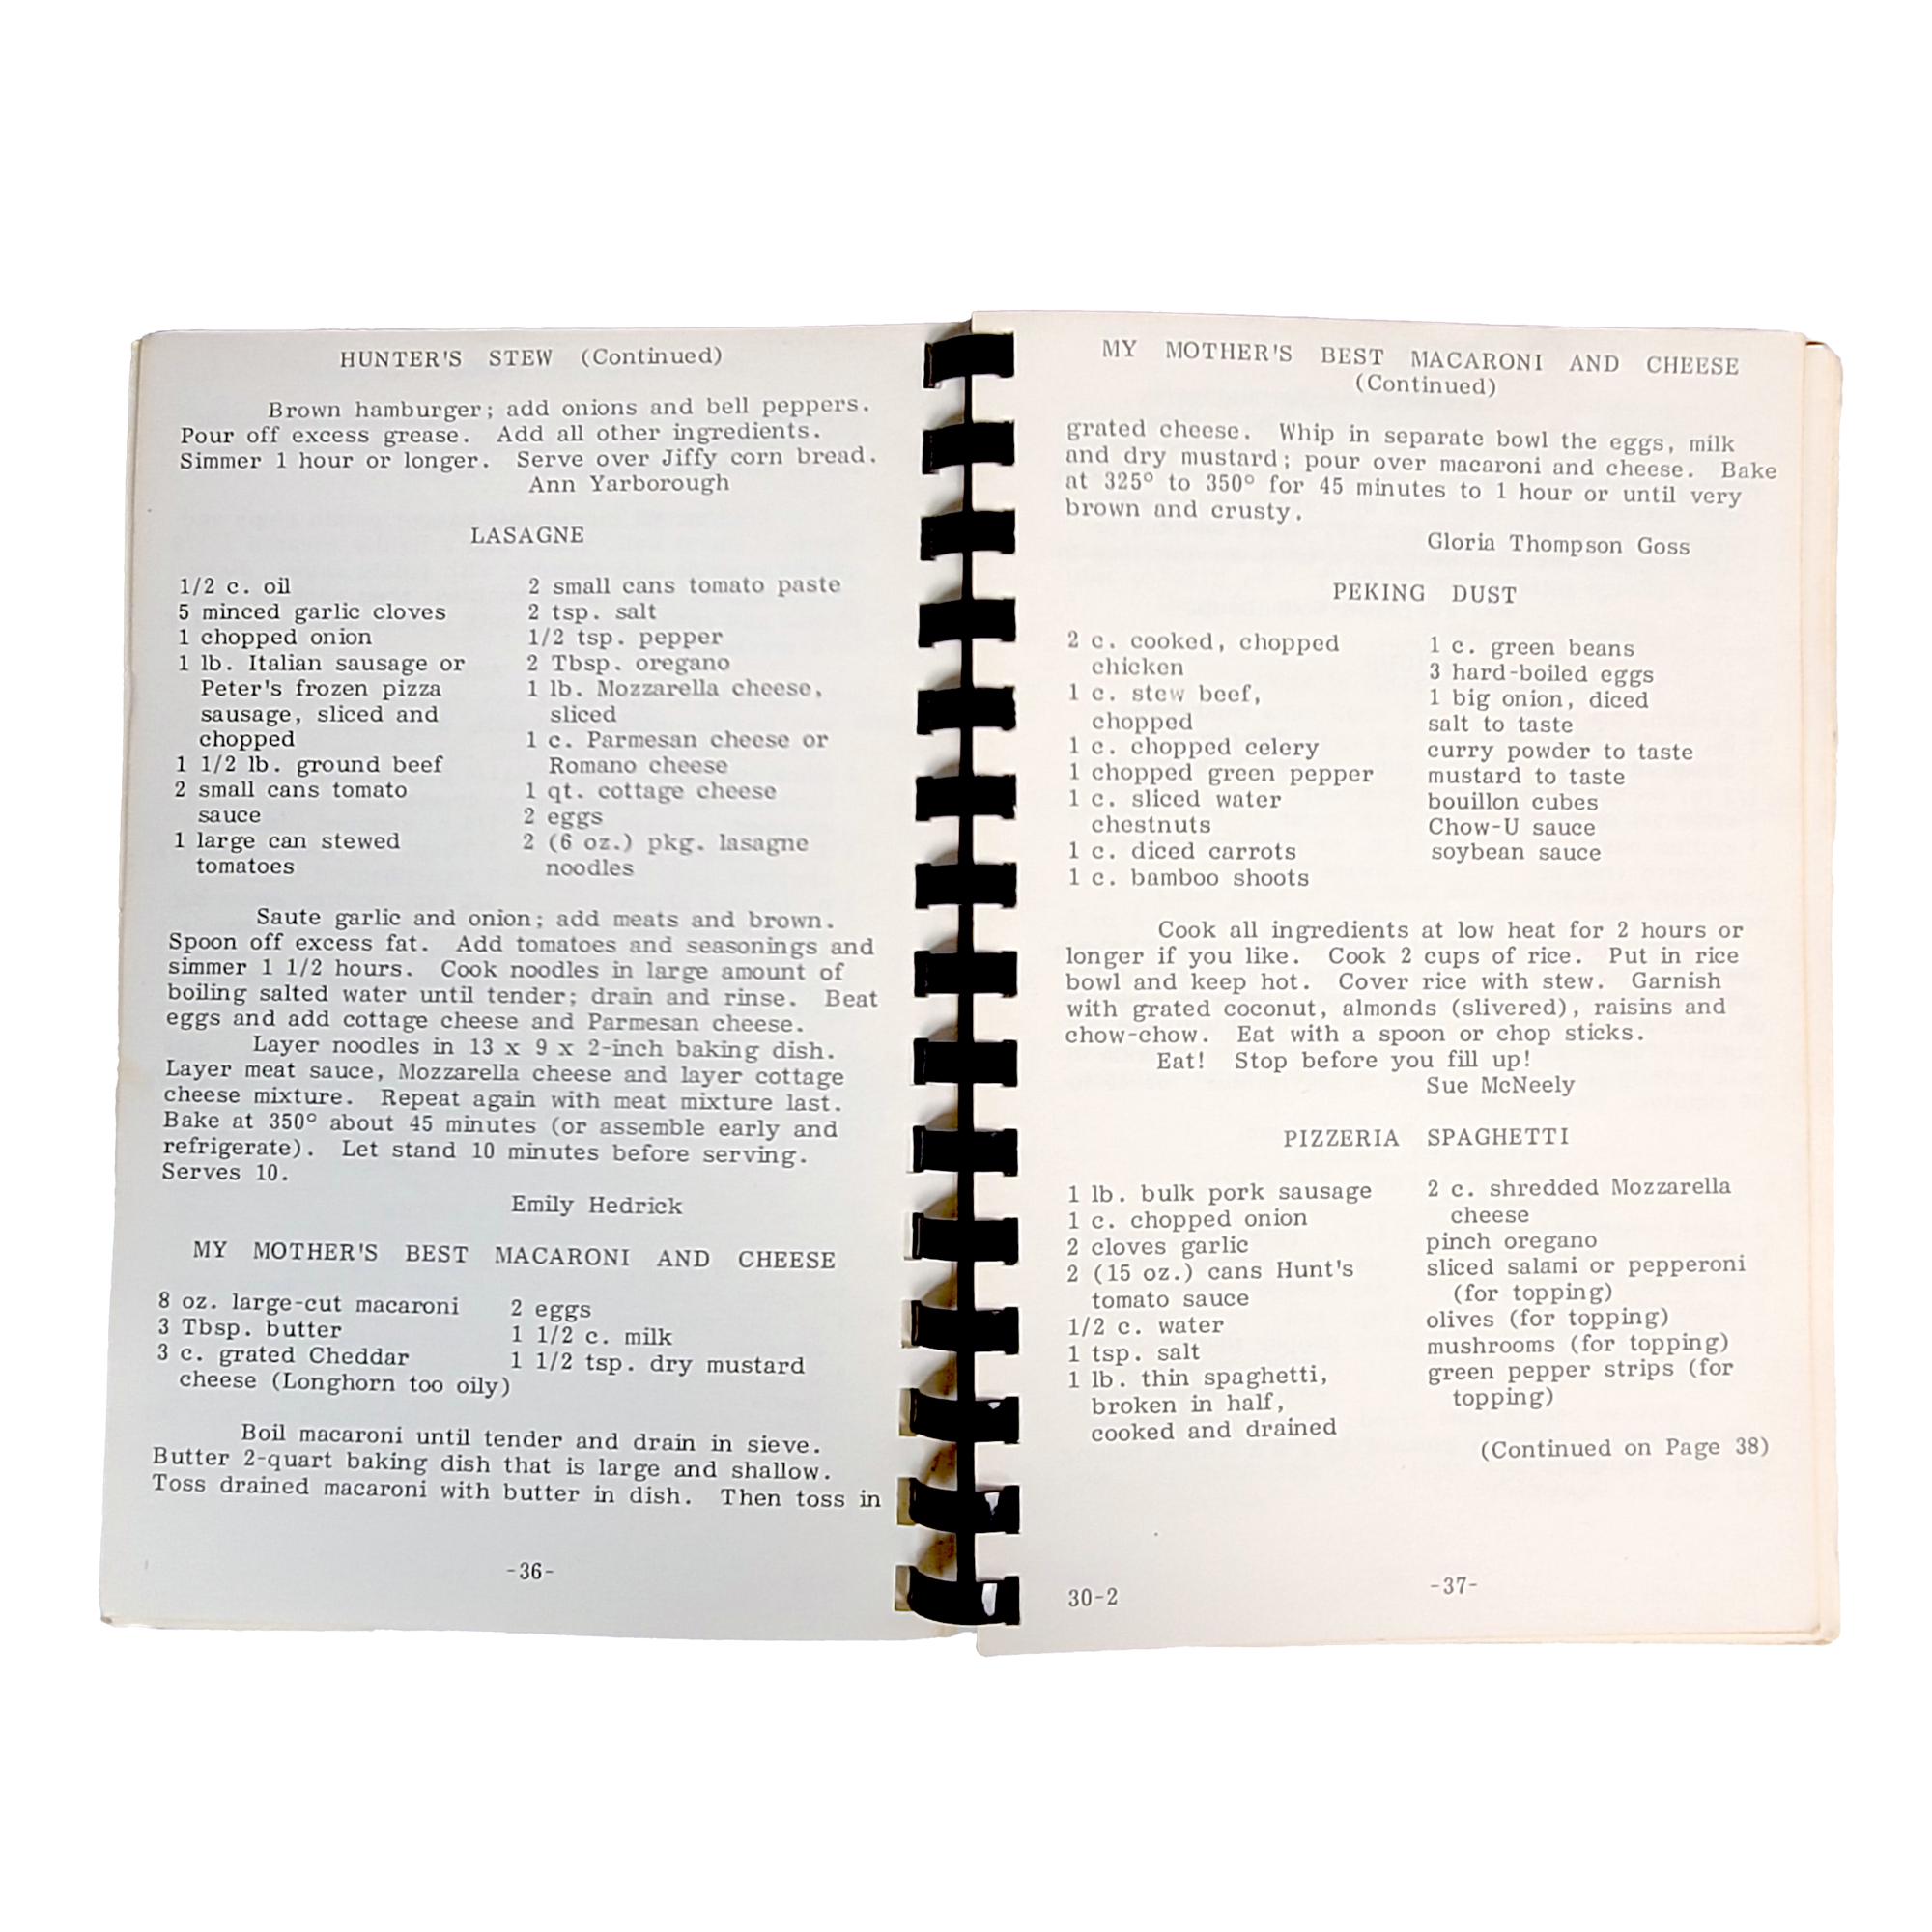 HUNTER'S STEW (Continued)
Brown hamburger; add onions and bell peppers.
Pour off excess grease. Add all other ingredients.
Simmer 1 hour or longer. Serve over Jiffy corn bread.
Ann Yarborough
LASAGNE
1/2 c. oil
5 minced garlic cloves
1 chopped onion
1 lb. Italian sausage or
Peter's frozen pizza
sausage, sliced and
chopped
1 1/2 lb. ground beef
2 small cans tomato
sauce
1 large can stewed
tomatoes
2 small cans tomato paste
2 tsp. salt
1/2 tsp. pepper
2 Tbsp. oregano
1 lb. Mozzarella cheese,
sliced
1 c. Parmesan cheese or
Romano cheese
1 qt. cottage cheese
2 eggs
2 (6 oz.) pkg. lasagne
noodles
Saute garlic and onion; add meats and brown.
Spoon off excess fat. Add tomatoes and seasonings and
simmer 1 1/2 hours. Cook noodles in large amount of
boiling salted water until tender; drain and rinse. Beat
eggs and add cottage cheese and Parmesan cheese.
Layer noodles in 13 x 9 x 2-inch baking dish.
Layer meat sauce, Mozzarella cheese and layer cottage
cheese mixture. Repeat again with meat mixture last.
Bake at 350° about 45 minutes (or assemble early and
refrigerate). Let stand 10 minutes before serving.
Serves 10.
Emily Hedrick
MY MOTHER'S BEST MACARONI AND CHEESE
8 oz. large-cut macaroni
3 Tbsp. butter
3 c. grated Cheddar
cheese (Longhorn too oily)
2 eggs
1 1/2 c. milk
1 1/2 tsp. dry mustard
Boil macaroni until tender and drain in sieve.
Butter 2-quart baking dish that is large and shallow.
Toss drained macaroni with butter in dish. Then toss in
-36-
MY MOTHER'S BEST MACARONI AND CHEESE
(Continued)
grated cheese. Whip in separate bowl the eggs, milk
and dry mustard; pour over macaroni and cheese. Bake
at 325° to 350° for 45 minutes to 1 hour or until very
brown and crusty.
Gloria Thompson Goss
PEKING DUST
2 c. cooked, chopped
chicken
1 c. stew beef,
chopped
1 c. chopped celery
1 chopped green pepper
1 c. sliced water
chestnuts
1 c. diced carrots
1 c. bamboo shoots
1 c. green beans
3 hard-boiled eggs
1 big onion, diced
salt to taste
curry powder to taste
mustard to taste
bouillon cubes
Chow-U sauce
soybean sauce
Cook all ingredients at low heat for 2 hours or
longer if you like. Cook 2 cups of rice. Put in rice
bowl and keep hot. Cover rice with stew. Garnish
with grated coconut, almonds (slivered), raisins and
chow-chow. Eat with a spoon or chop sticks.
Eat! Stop before you fill up!
Sue McNeely
PIZZERIA SPAGHETTI
1 lb. bulk pork sausage
1 c. chopped onion
2 cloves garlic
2 (15 oz.) cans Hunt's
tomato sauce
1/2 c. water
1 tsp. salt
1 lb. thin spaghetti,
broken in half,
cooked and drained
2 c. shredded Mozzarella
cheese
pinch oregano
sliced salami or pepperoni
(for topping)
olives (for topping)
mushrooms (for topping)
green pepper strips (for
topping)
(Continued on Page 38)
30-2
-37-